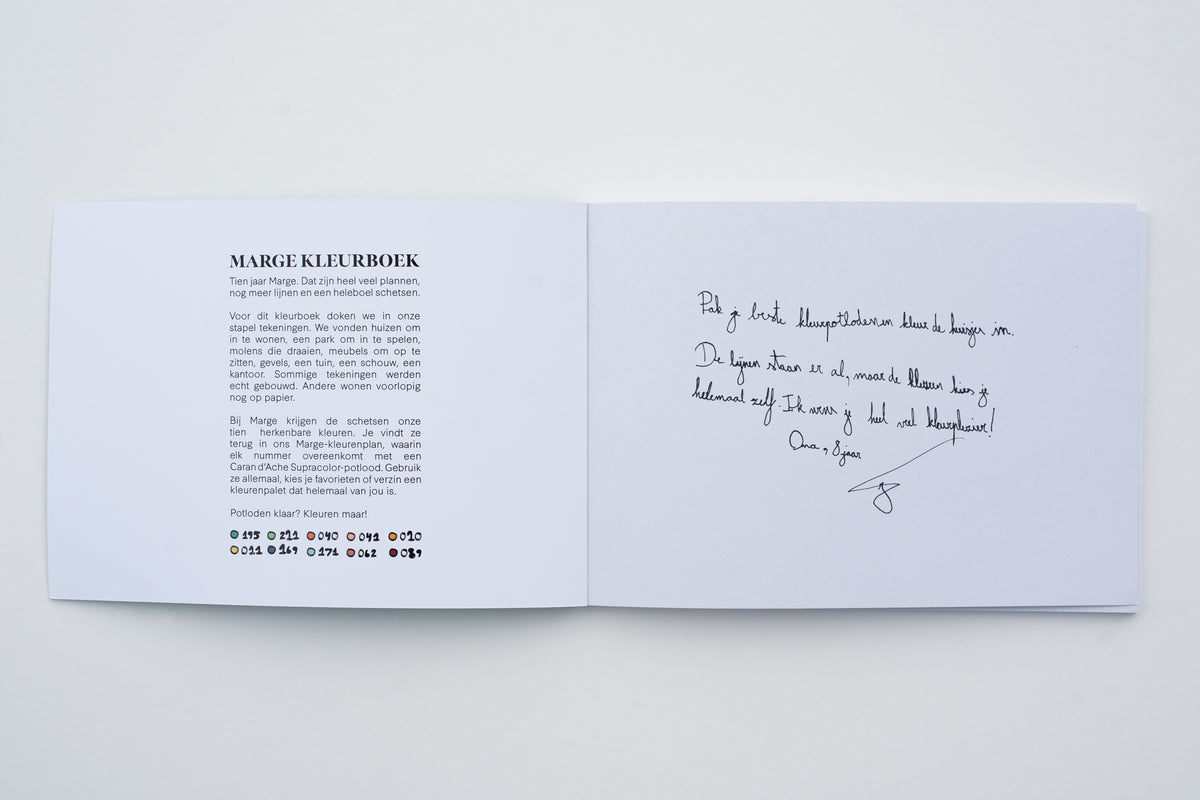 MARGE KLEURBOEK
Tien jaar Marge. Dat zijn heel veel plannen,
nog meer lijnen en een heleboel schetsen.
Voor dit kleurboek doken we in onze
stapel tekeningen. We vonden huizen om
in te wonen, een park om in te spelen,
molens die draaien, meubels om op te
zitten, gevels, een tuin, een schouw, een
kantoor. Sommige tekeningen werden
echt gebouwd. Andere wonen voorlopig
nog op papier.
Bij Marge krijgen de schetsen onze
tien herkenbare kleuren. Je vindt ze
terug in ons Marge-kleurenplan, waarin
elk nummer overeenkomt met een
Caran d'Ache Supracolor-potlood. Gebruik
ze allemaal, kies je favorieten of verzin een
kleurenpalet dat helemaal van jou is.
Potloden klaar? Kleuren maar!
195 221 040 041 020
021 169 171 062 089
Pak je beste kleurpotloden en kleur de huisjes in.
De lijnen staan er al, maar de kleuren kies je
helemaal zelf. Ik wens je heel veel kleurplezier!
Ona, 8 jaar